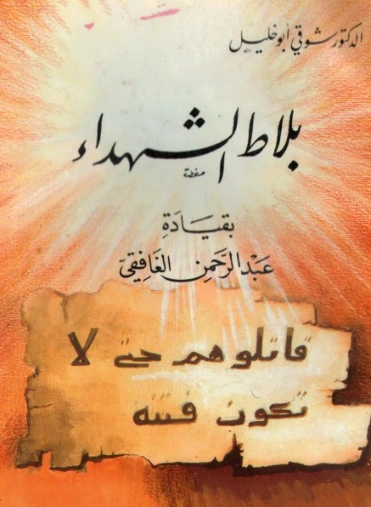 الدكتور شوقي أبو خليل
بلاط الشهداء
بقيادة
عبد الرحمن الغافقي
قاتلوهم حتى لا
تكون فتنة